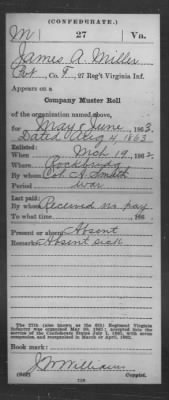 (CONFEDERATE.)
M 27 Va.
James A. Miller
Pvt, Co. F, 27 Reg't Virginia Inf.
Appears on a
Company Muster Roll
of the organization named above,
for May & June, 1863.
Dated Aug 4, 1863
Enlisted:
When Mch 19, 1862.
Where Rockbridge
By whom A. Smith
Period war
Last paid:
By whom Received no pay
To what time , 186 .
Present or absent Absent
Remarks: Absent sick
The 27th (also known as the 6th) Regiment Virginia
Infantry was organized May 30, 1861; accepted into the
service of the Confederate States July 1, 1861, with seven
companies, and reorganized in March or April, 1862.
Book mark:
J W Williams
(642) Copyist.